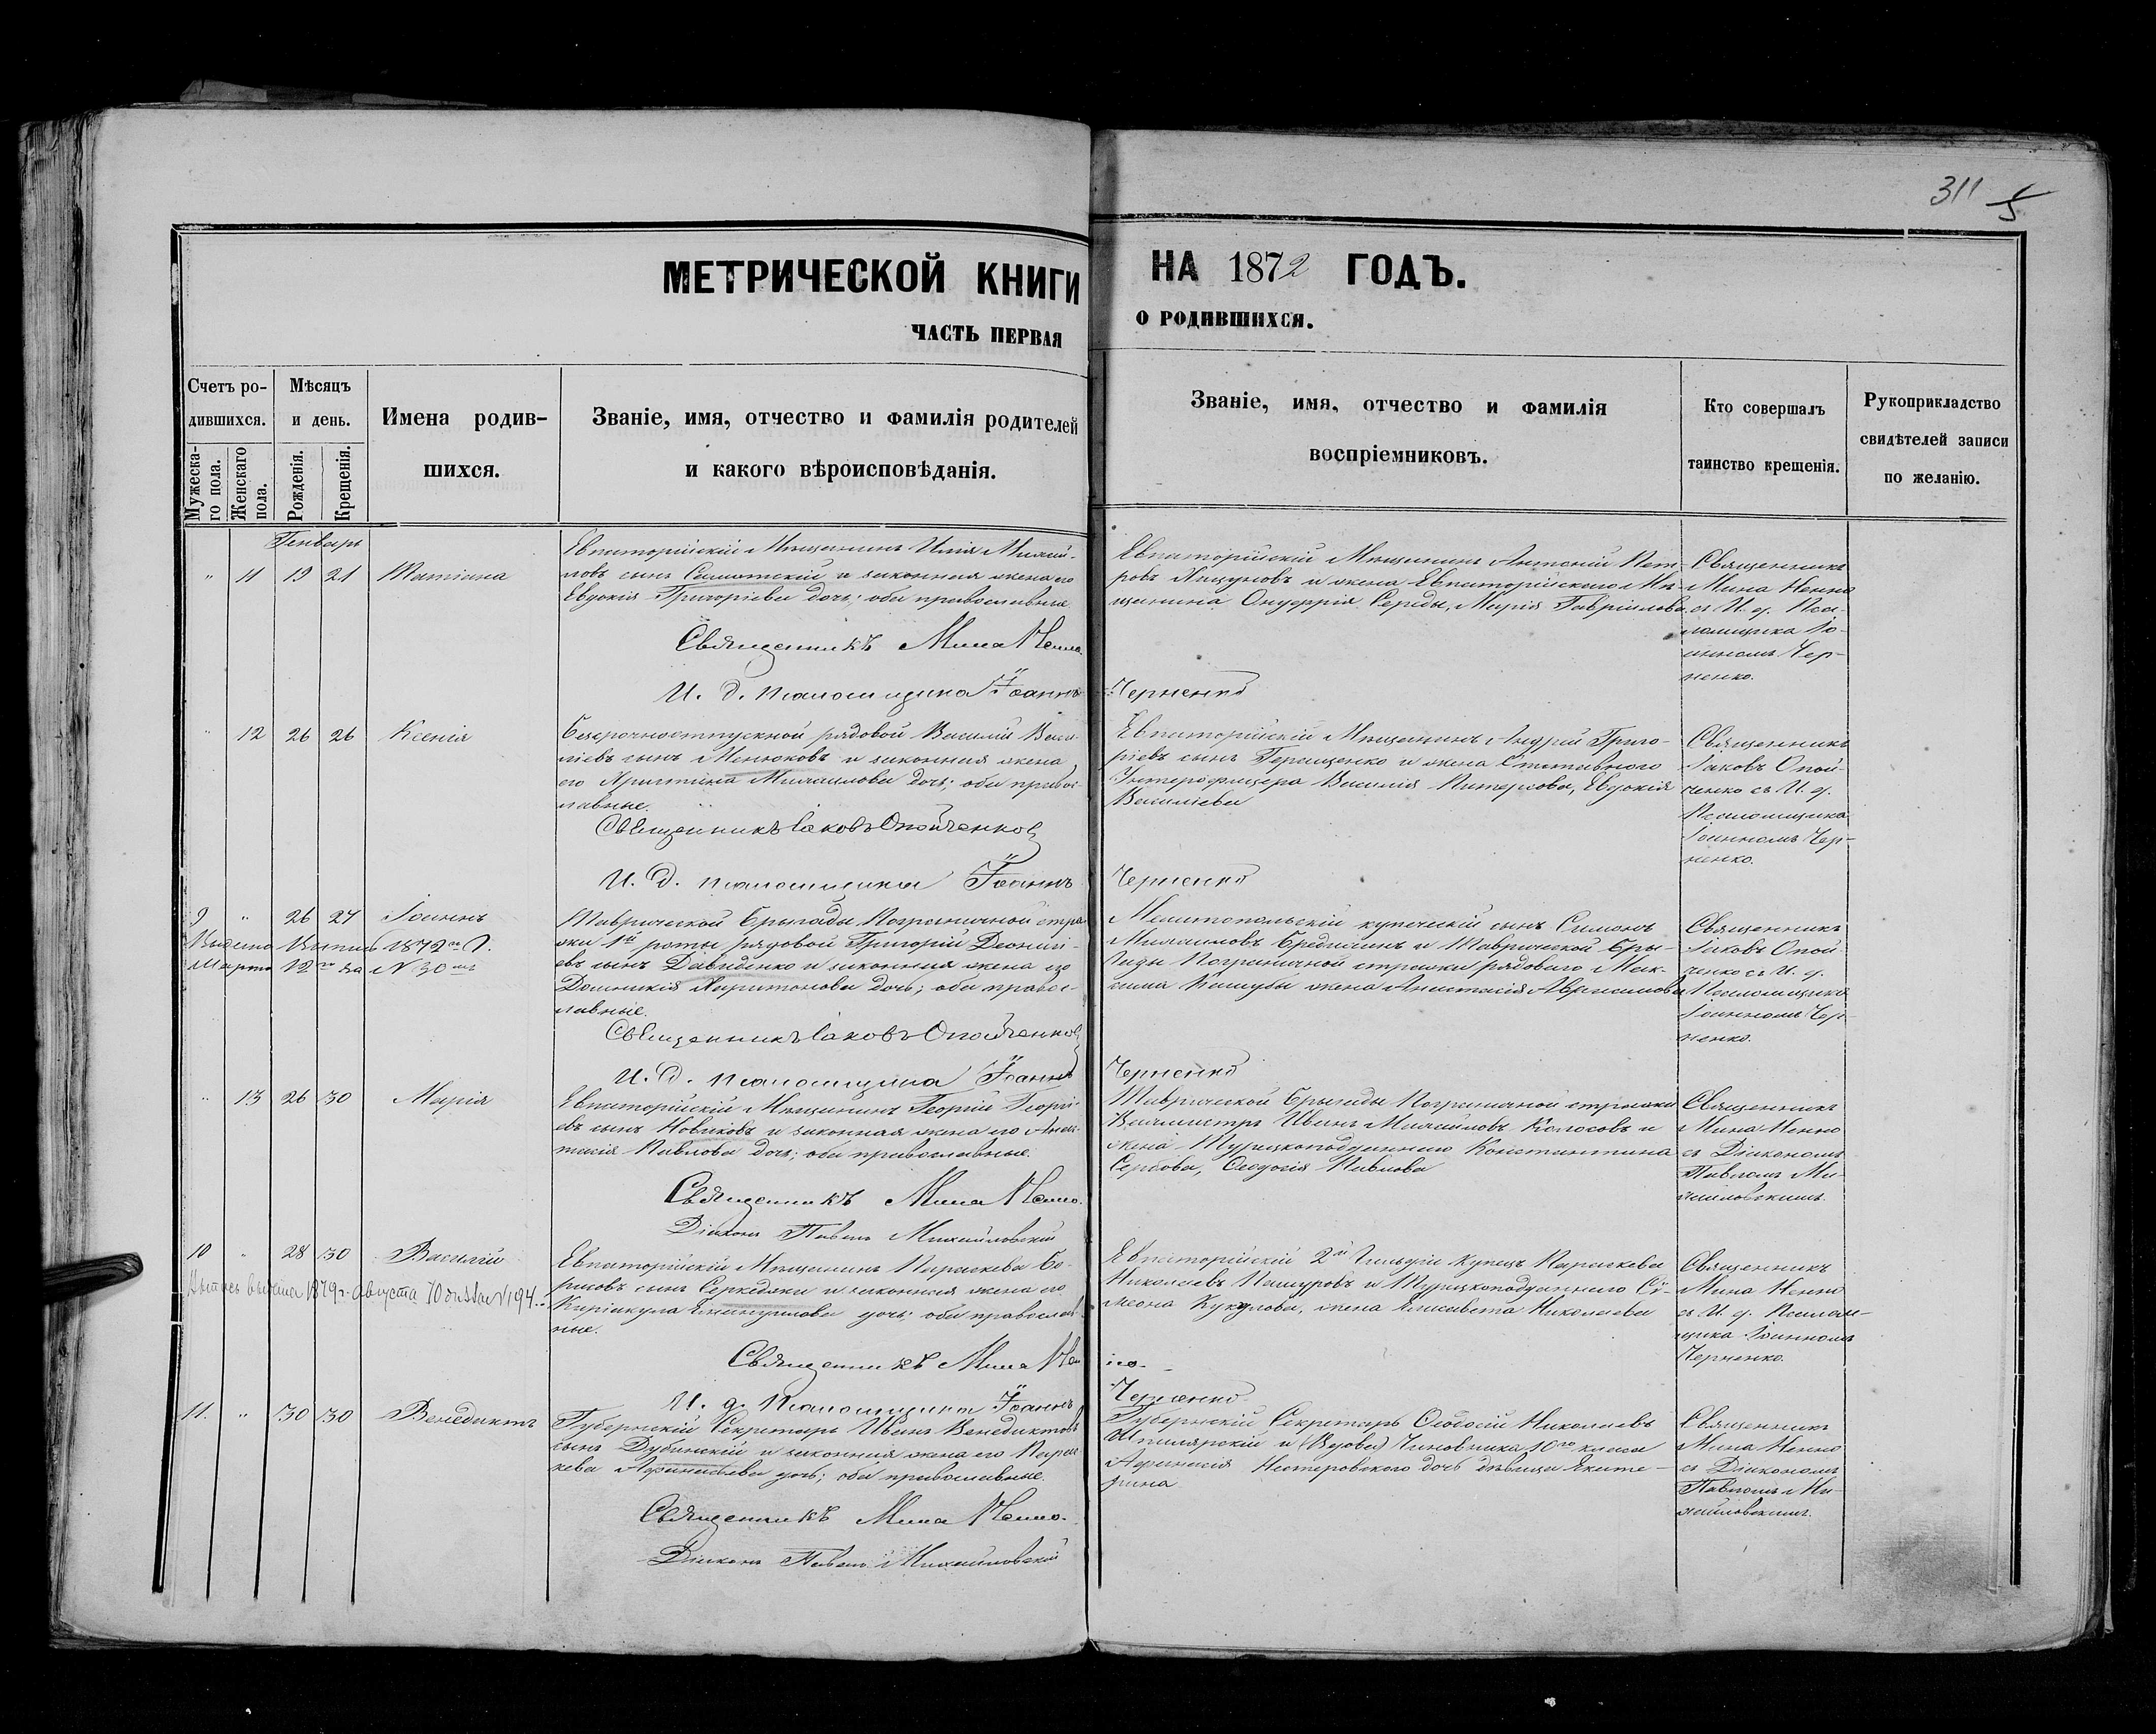 311 5
МЕТРИЧЕСКОЙ КНИГИ НА 1872 ГОДЪ.
ЧАСТЬ ПЕРВАЯ О РОДИВШИХСЯ.
Счетъ ро-
дившихся.
Мужеска-
го пола.
Женскаго
пола.
Мѣсяцъ
и день.
Рожденія.
Крещенія.
Имена родив-
шихся.
Званіе, имя, отчество и фамилія родителей
и какого вѣроисповѣданія.
Званіе, имя, отчество и фамилія
воспріемниковъ.
Кто совершалъ
таинство крещенія.
Рукоприкладство
свидѣтелей записи
по желанію.
Генварь
" 11 19 21 Татіана
Евпаторійскій Мѣщанинъ Илія Михай-
ловъ сынъ и законная жена его
Евдокія Григоріева дочь; оба православные
Священникъ Мина Ненно.
И. д. псаломщика Іоаннъ Черненко
Евпаторійскій Мѣщанинъ Антоній Пет-
ровъ и жена Евпаторійскаго Мѣ-
щанина Онуфрія Середы, Марія Гавріилова
Священникъ
Мина Ненно
съ И. д. Пса-
ломщика Іо-
анномъ Чер-
ненко.
" 12 26 26 Ксенія
Безсрочноотпускной рядовой Василій Васи-
ліевъ сынъ Менюковъ и законная жена
его Христина Михайлова дочь; оба правос-
лавные.
Священникъ Іаковъ Опойченковъ
И. д. псаломщика Іоаннъ Черненко
Евпаторійскій Мѣщанинъ Андрей Григо-
ріевъ сынъ Геращенко и жена Отставного
Унтерофицера Василія Евдокія
Василіева
Священникъ
Іаковъ Опой-
ченко съ И. д.
Псаломщика
Іоанномъ Чер-
ненко.
9 " 26 27 Іоаннъ
Выдана Выпись 1872го г.
Марта 12го за №30мъ
Таврической Бригады Пограничной стра-
жи 1й роты рядовой Григорій Деонисі-
евъ сынъ Давиденко и законная жена его
Домникія Харитонова дочь; оба правос-
лавные.
Священникъ Іаковъ Опойченковъ
И. д. псаломщика Іоаннъ Черненко
Мелитопольскій купеческій сынъ Симонъ
Михайловъ и Таврической Бри-
гады Пограничной стражи рядового Мак-
сима жена Анастасія
Священникъ
Іаковъ Опой-
ченко съ И. д.
Псаломщика
Іоанномъ Чер-
ненко.
" 13 26 30 Марія
Евпаторійскій Мѣщанинъ Георгій Георгі-
евъ сынъ Новиковъ и законная жена его Анас-
тасія Павлова дочь; оба православные.
Священникъ Мина Ненно.
Діаконъ Павелъ Михайловскій
Таврической Бригады Пограничной стражи
Вахмистръ Иванъ Михайловъ Колосовъ и
жена Турецкоподданнаго Константина
Сербова, Ѳеодосія Павлова
Священникъ
Мина Ненно
съ Діакономъ
Павломъ Ми-
хайловскимъ.
10 " 28 30 Василій
Выпись выдана 1879г. августа 10 дня за №194.
Евпаторійскій Мѣщанинъ Параскева Бо-
рисовъ сынъ и законная жена его
дочь; оба православ-
ные.
Священникъ Мина Ненно.
И. д. Псаломщика Іоаннъ Черненко
Евпаторійскій 2й Гильдіи Купецъ Параскева
Николаевъ Пашуровъ и Турецкоподданнаго Си-
меона жена Елисавета Николаева
Священникъ
Мина Ненно
съ И. д. Псалом-
щика Іоанномъ
Черненко.
11. " 30 30 Венедиктъ
Губернскій Секретарь Иванъ Венедиктовъ
сынъ Дубинскій и законная жена его Парас-
кева Аѳанасьева дочь; оба православные.
Священникъ Мина Ненно.
Діаконъ Павелъ Михайловскій
Губернскій Секретарь Ѳеодосій Николаевъ
и (Вдова) Чиновника 10го класса
Аѳанасія Нестеровскаго дочь дѣвица Екате-
рина
Священникъ
Мина Ненно
съ Діакономъ
Павломъ Ми-
хайловскимъ.